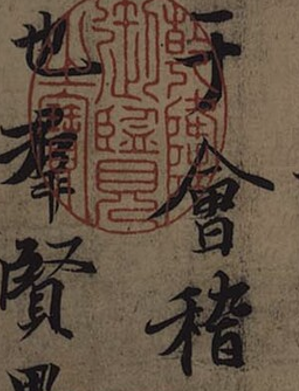 于會稽
也羣賢畢
乾隆御覽之寶